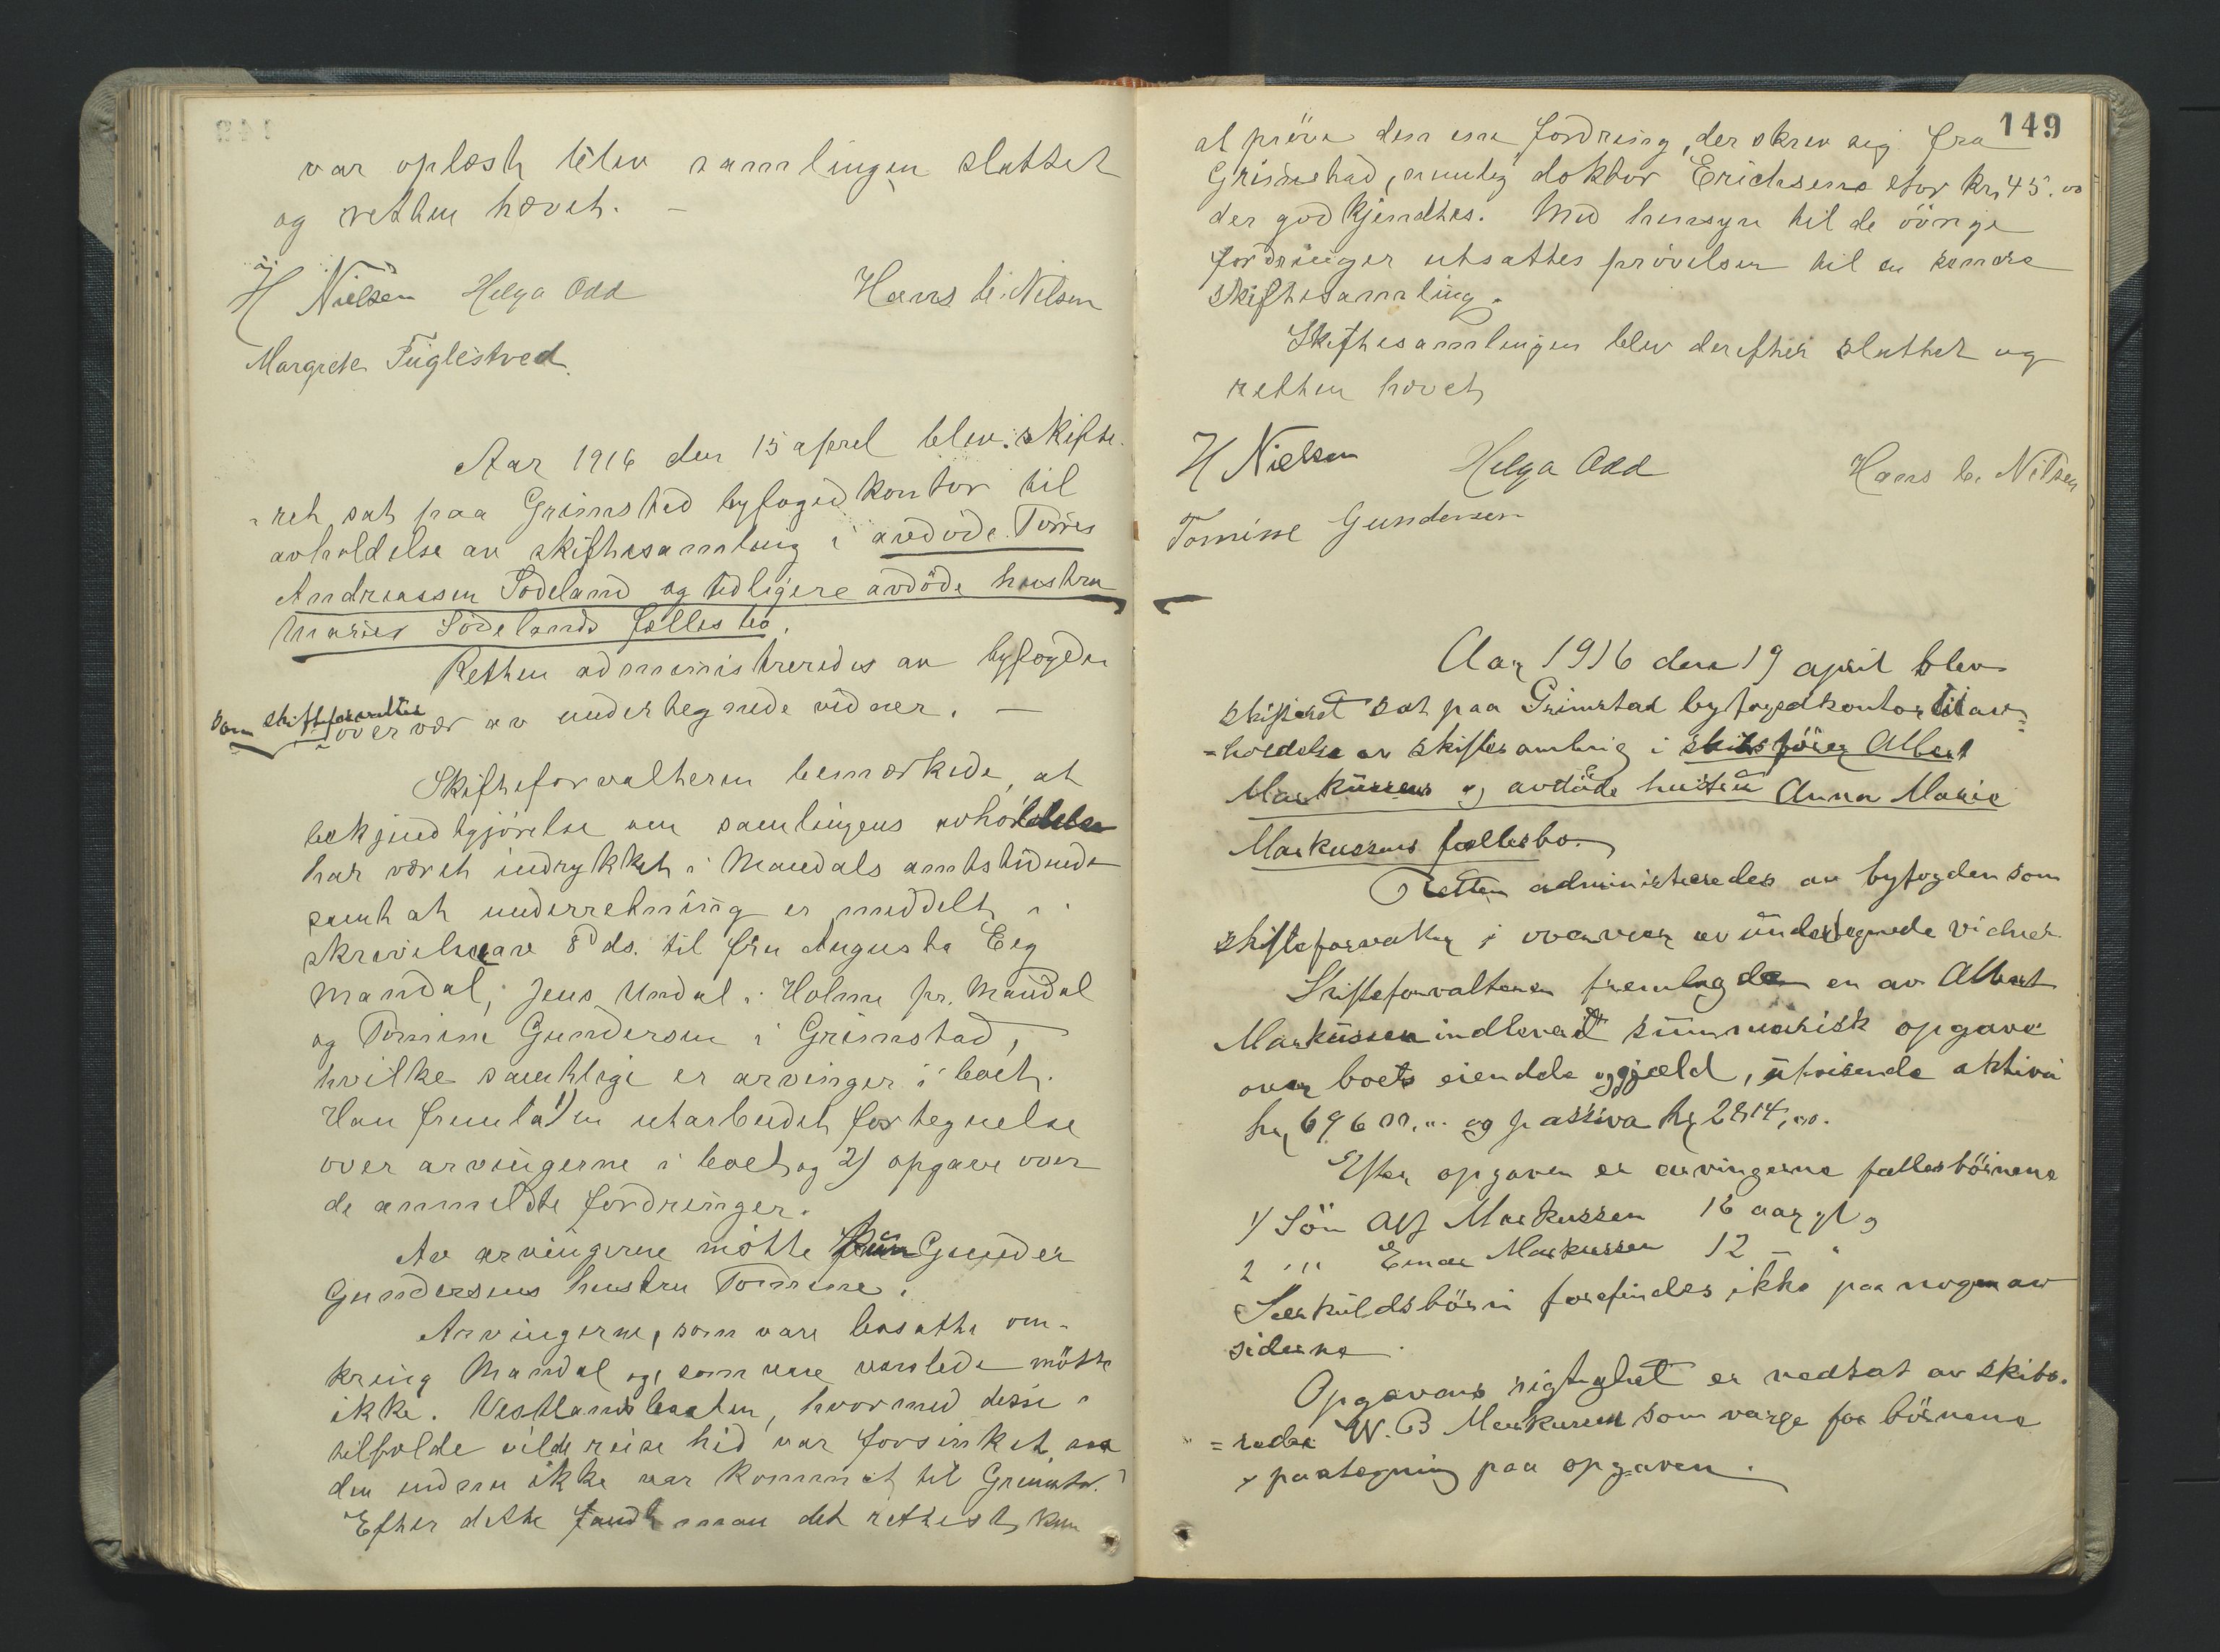 var oplæst blev samlingen sluttet
og retten hævet. —
H Nielsen Helga Odd Hans C. Nilsen
Margrete Fuglestved
Aar 1916 den 15 april blev skifte-
ret sat paa Grimstad byfogedkontor til
avholdelse av skiftesamling i avdöde Torres
Andreassen Södeland og tidligere avdöde hustru
Maries Södelands fællesbo.
Retten administreredes av byfogden
som skifteforvalter
i overvær av undertegnede vidner. —
Skifteforvalteren bemærkede, at
bekjendtgjörelse om samlingens avholdelse
har været indrykket i Mandals amtstidende
samt at underretning er meddelt i
skrivelse av 8 ds. til fru Augusta Eeg
Mandal, Jens Undal i Holme pr. Mandal
og Tomine Gundersen i Grimstad,
hvilke samtlige er arvinger i boet.
Han fremla 1) en utarbeidet fortegnelse
over arvingerne i boet og 2) opgave over
de anmeldte fordringer.
Av arvingerne mötte kun Gunder
Gundersens hustru Tomine.
Arvingerne, som vare bosatte om-
kring Mandal og som vare varslede mötte
ikke. Vestlandsbaaten, hvormed disse i
tilfælde vilde reise hid var forsinket, saa
den endnu ikke var kommet til Grimstad.
Efter dette fandt man det rettest kun
149
at pröve den ene fordring, der skrev sig fra
Grimstad, nemlig doktor Erichsens stor kr. 45.00
der godkjendtes. Med hensyn til de övrige
fordringer utsattes prövelsen til en senere
skiftesamling.
Skiftesamlingen blev derefter sluttet og
retten hævet
H Nielsen Helga Odd Hans C. Nilsen
Tomine Gundersen
Aar 1916 den 19 april blev
skifteret sat paa Grimstad byfogedkontor til av-
-holdelse av skiftesamling i skibsförer Albert
Markussens og avdöde hustru Anna Marie
Markussens fællesbo.
Retten administreredes av byfogden som
skifteforvalter i overvær av undertegnede vidner
Skifteforvalteren fremlagde en av Albert
Markussen indleveret summarisk opgave
over boets eiendele og gjæld, utvisende aktiva
kr. 69600.00 og passiva kr. 2814.00.
Efter opgaven er arvingerne fællesbörnene
1/ Sön Alf Markussen 16 aar gl. og
2 " Einar Markussen 12 — "
Særkuldsbörn forefindes ikke paa nogen av
siderne.
Opgavens rigtighet er vedtat av skibs-
=reder W. B Markussen som værge for börnene
v paategning paa opgaven.